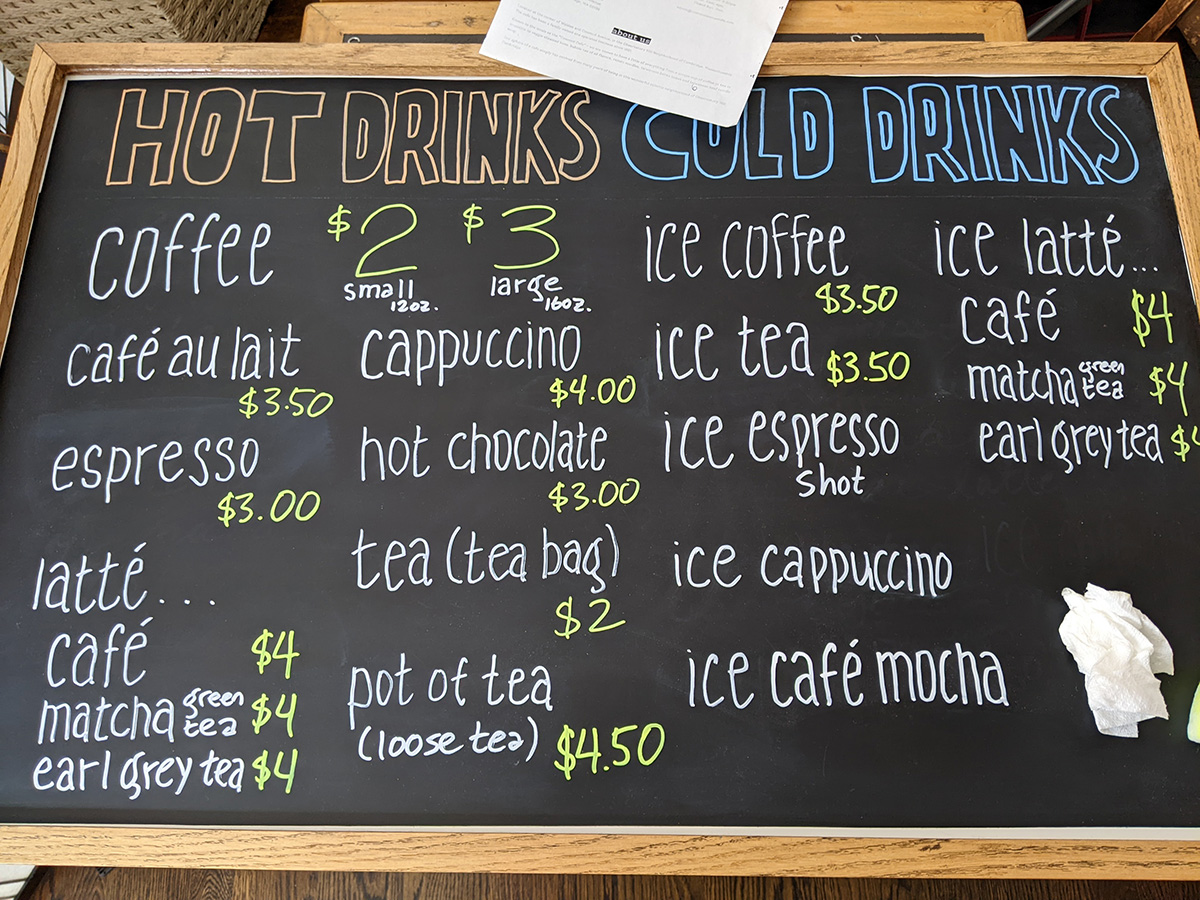 about us
HOT DRINKS
coffee $2 $3
small 12oz. large 16oz.
café au lait
$3.50
espresso
$3.00
latté...
café $4
matcha green tea $4
earl grey tea $4
cappuccino
$4.00
hot chocolate
$3.00
tea (tea bag)
$2
pot of tea
(loose tea) $4.50
COLD DRINKS
ice coffee
$3.50
ice tea $3.50
ice espresso
shot
ice cappuccino
ice café mocha
ice latté...
café $4
matcha green tea $4
earl grey tea